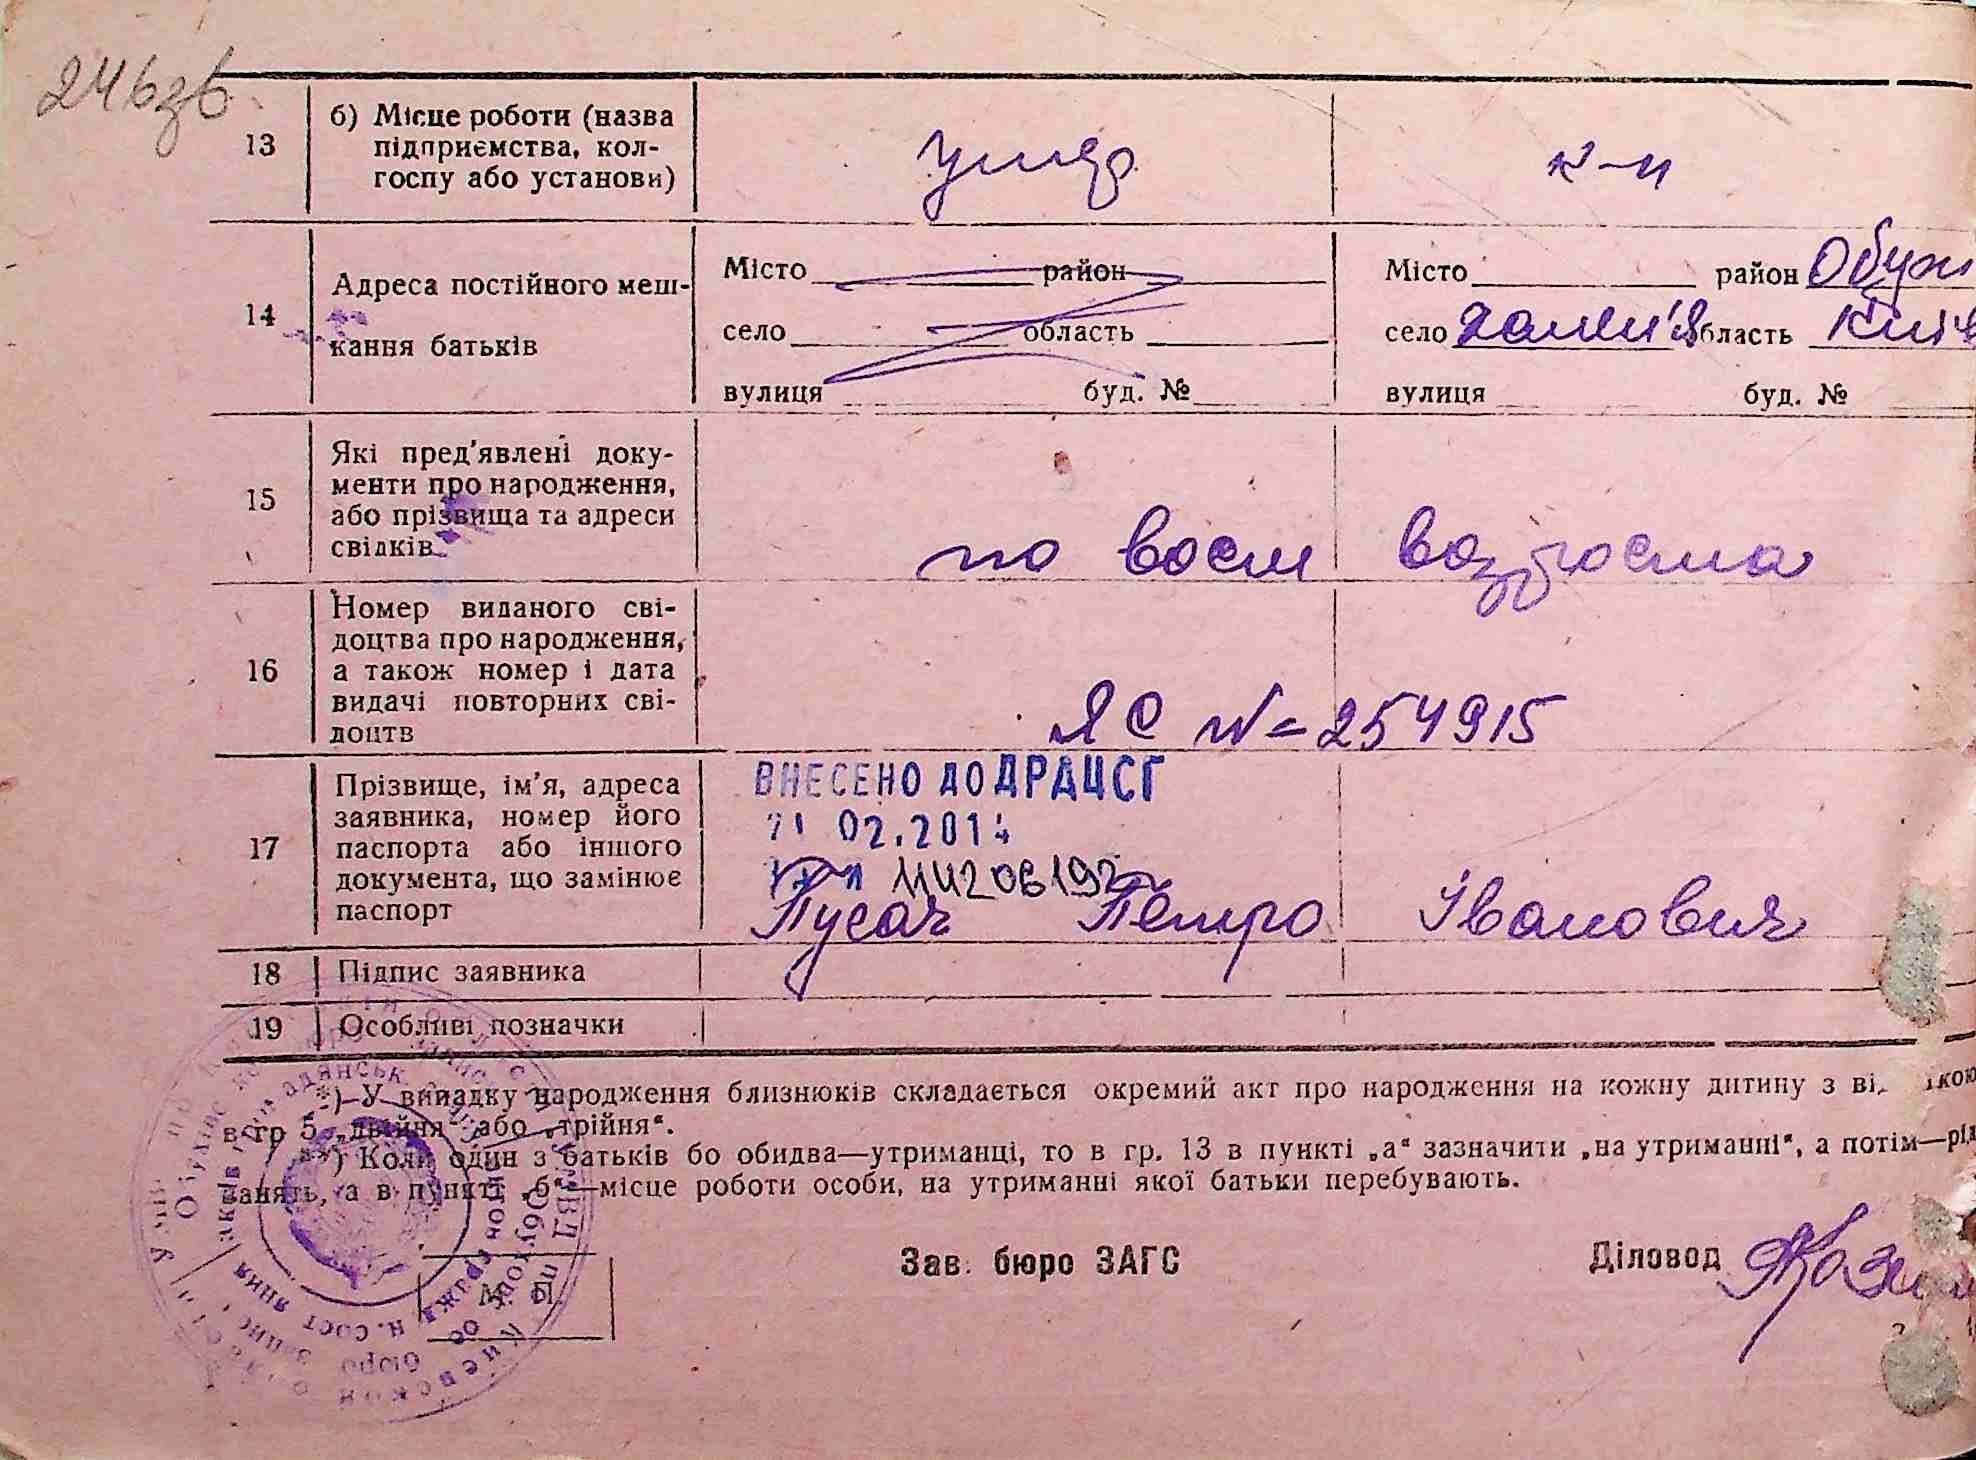 246зв
13 б) Місце роботи (назва підприємства, колгоспу або установи) умер к-п
14 Адреса постійного меш-
кання батьків
Місто район Місто район Обух
село область село область Київ
вулиця буд. № вулиця буд. №
15 Які пред'явлені доку-
менти про народження,
або прізвища та адреси
свідків
по восм возросма
16 Номер виданого сві-
доцтва про народження,
а також номер і дата
видачі повторних сві-
доцтв
ЯС № 254915
17 Прізвище, ім'я, адреса
заявника, номер його
паспорта або іншого
документа, що замінює
паспорт
ВНЕСЕНО ДО ДРАЦСГ
02.201
Пусач Петро Іванович
18 Підпис заявника
19 Особливі позначки
*) У випадку народження близнюків складається окремий акт про народження на кожну дитину з
в гр 5 „двійня“ або „трійня“.
**) Коли один з батьків бо обидва—утриманці, то в гр. 13 в пункті „а“ зазначити „на утриманні“, а потім—рід
занять, а в пункті „б“—місце роботи особи, на утриманні якої батьки перебувають.
Зав. бюро ЗАГС Діловод
М. П.